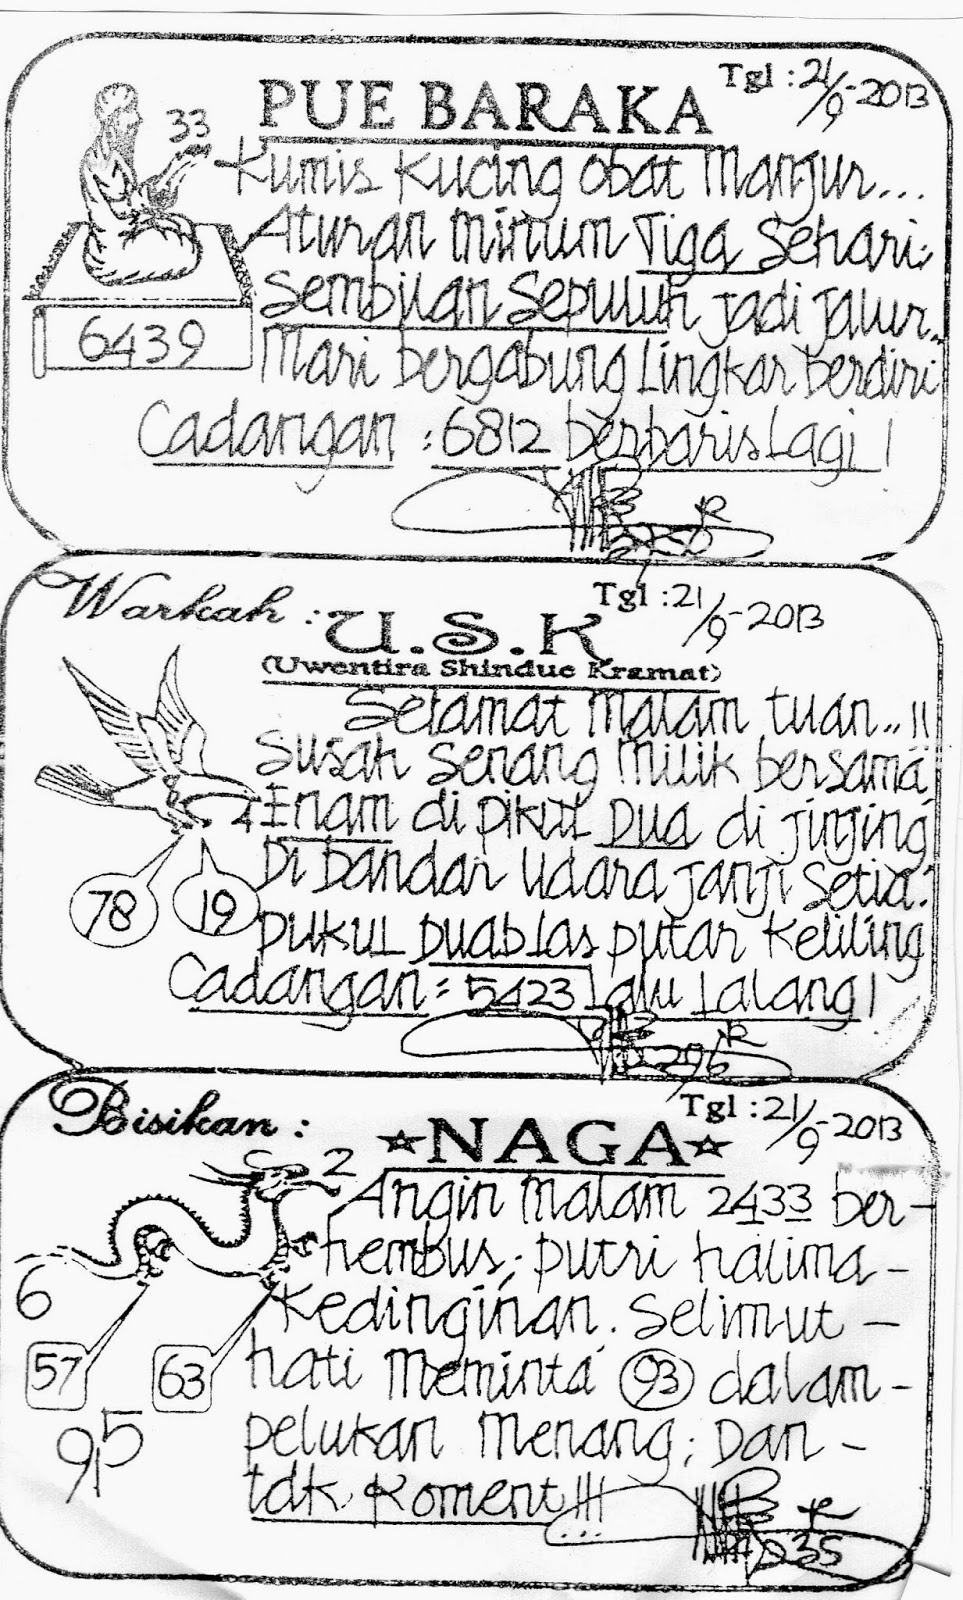 PUE BARAKA
Tgl : 21/9-2013
33
Kumis Kucing obat Manjur...
Aturan Minum Tiga Sehari.
6439
Sembilan Sepuluh jadi jalur..
Mari bergabung Lingkar berdiri
Cadangan : 6812 berbaris Lagi !
Warkah :
U.S.K
Tgl : 21/9-2013
(Uwentira Shindue Kramat)
Selamat Malam tuan..!!
Susah Senang Milik bersama
4
Enam di pikul Dua di jinjing
78
19
Di bandar Udara janji Setia.
pukul Duablas putar Keliling
Cadangan = 5423 Lalu Lalang !
Bisikan :
NAGA
Tgl : 21/9-2013
2
Angin Malam 2433 ber-
hembus; putri halima-
6
Kedinginan. Selimut-
57
63
hati Meminta 93 dalam-
95
pelukan Menang; Dan-
tdk Koment !!!